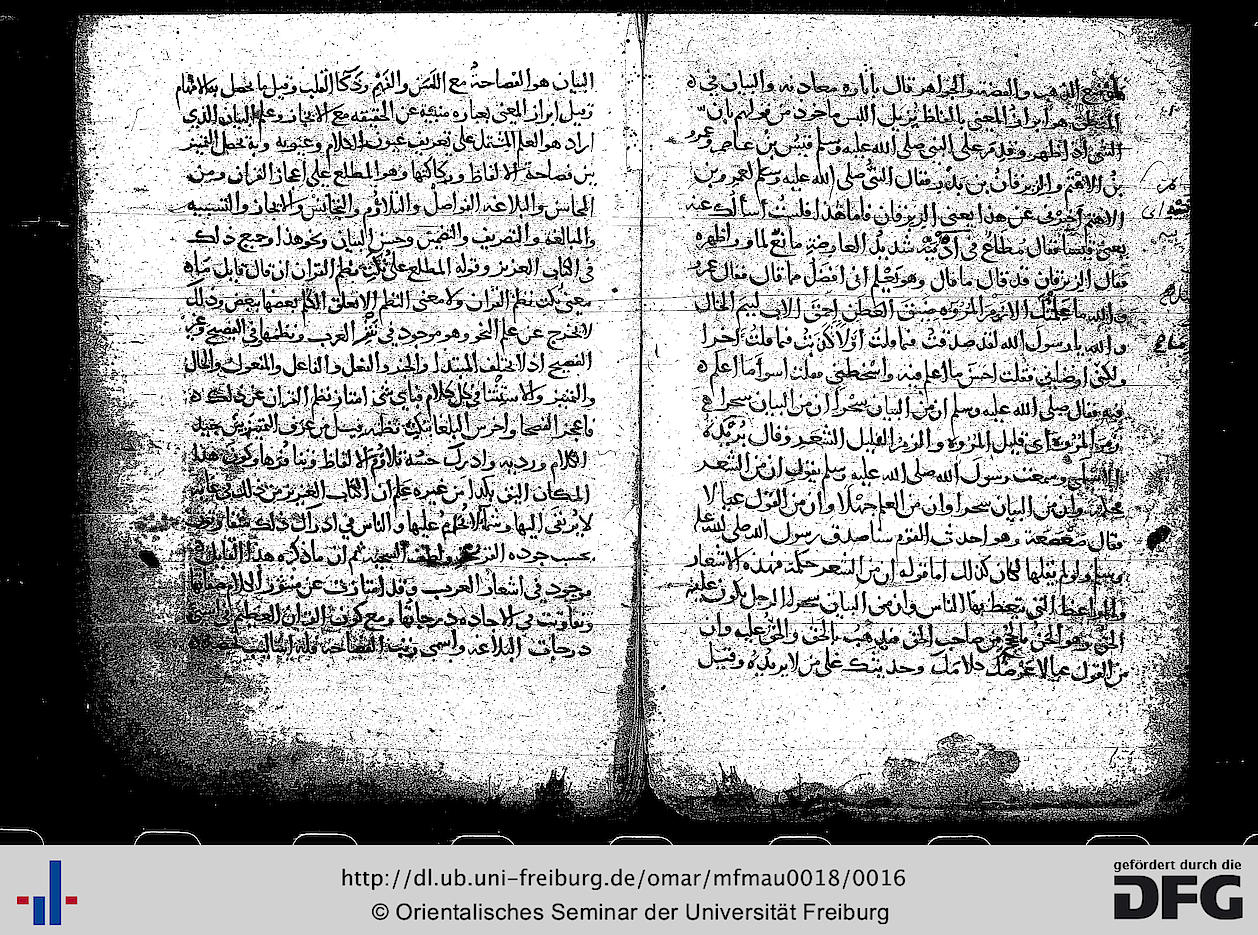 الذهب والفضة والجواهر قال بإثاره معادنه والبيان في
هو ابراز المعنى بالفاظ يزيل اللبس ماخوذ من قولهم بان
الشي اذا ظهر وقدم على النبي صلى الله عليه وسلم قيس بن عاصم وعمرو
بن الاهتم والزبرقان بن بدر فقال النبي صلى الله عليه وسلم لعمرو بن
الاهتم اخبرني عن هذا يعني الزبرقان فاما هذا فلست اسالك عنه
يعني قيسا فقال مطاع في ادنيه شديد العارضة مانع لما وراظهره
فقال الزبرقان قد قال ما قال وهو يعلم اني افضل مما قال فقال عمرو
والله ما علمتك الا زمر المروه ضيق العطن احمق الاب لييم الخال
والله يا رسول الله لقد صدقت فيما قلت اولا وما كذبت فيما قلت اخرا
ولكني ارضاني فقلت احسن ما اعلم فيه واسخطني فقلت اسوا ما اعلم
فيه فقال صلى الله عليه وسلم ان من البيان سحرا ان من البيان سحرا
زمر المروه اي قليل المروه والزمر القليل الشعر وقال بريده
الاسلمي وسمعت رسول الله صلى الله عليه وسلم يقول ان من الشعر
حكمة وان من البيان سحرا وان من العلم جهلا وان من القول عيالا
فقال صعصعة وهو احدث القوم سنا صدق رسول الله صلى الله عليه
وسلم ولو لم يقلها كان كذلك اما قوله ان من الشعر حكمة فهذه الاشعار
والمواعظ التي تتعظ بها الناس وان من البيان سحرا الرجل يكون عليه
الحق وهو الحن بالحجج من صاحب الحق فيذهب بالحق والحق عليه وان
من القول عيالا عرضك كلامك وحديثك على من لا يريده وقيل
البيان هو الفصاحة مع اللقن والفهم وذكا القلب وقيل ما يحصل به الافهام
وقيل ابراز المعنى بعبارة مبينة عن الحقيقة مع الايجاز وعلم البيان الذي
اراد هو العلم المشتمل على تعريف عيون الكلام وعيوبه وبه يحصل التمييز
بين فصاحة الالفاظ وركاكتها وهو المطلع على اعجاز القران ومن
المحاسن والبلاغة الفواصل والتلاؤم والتجانس والايجاز والتشبيه
والمبالغة والتصريف والتضمين وحسن البيان ونحو هذا وجميع ذلك
في الكتاب العزيز وقوله المطلع على نكت نظم القران ان قال قايل ما
معنى نكت نظم القران ولا معنى النظم الا تعلق الكلم بعضها ببعض وذلك
لا يخرج عن علم النحو وهو موجود في نثر العرب ونظمها في الفصيح وغير
الفصيح اذ لا يختلف المبتدا والخبر والفعل والفاعل والمفعول والحال
والتمييز والاستثنا في كل كلام فباي شي امتاز نظم القران عن ذلك
فاعجز الفصحا واخرس البلغا بنكت نظمه قيل من عرف التمييز بين جيد
الكلام ورديه وادرك حسنه تلاؤم الالفاظ وتنافرها وكون هذا
المكان اليق بكذا من غيره علم ان الكتاب العزيز من ذلك في غاية
لا يرتقى اليها والناس في ادراك ذلك متفاوتون
بحسب جوده القريحة ولطف السجية ثم ان ما ذكره هذا القايل
موجود في اشعار العرب وقد امتازت عن منثور الكلام
وتفاوتت في الاجاده درجاتها ومع كون القران العظيم في اعلى
درجات البلاغة واسمى رتب الفصاحة
http://dl.ub.uni-freiburg.de/omar/mfmau0018/0016
© Orientalisches Seminar der Universität Freiburg
gefördert durch die
DFG